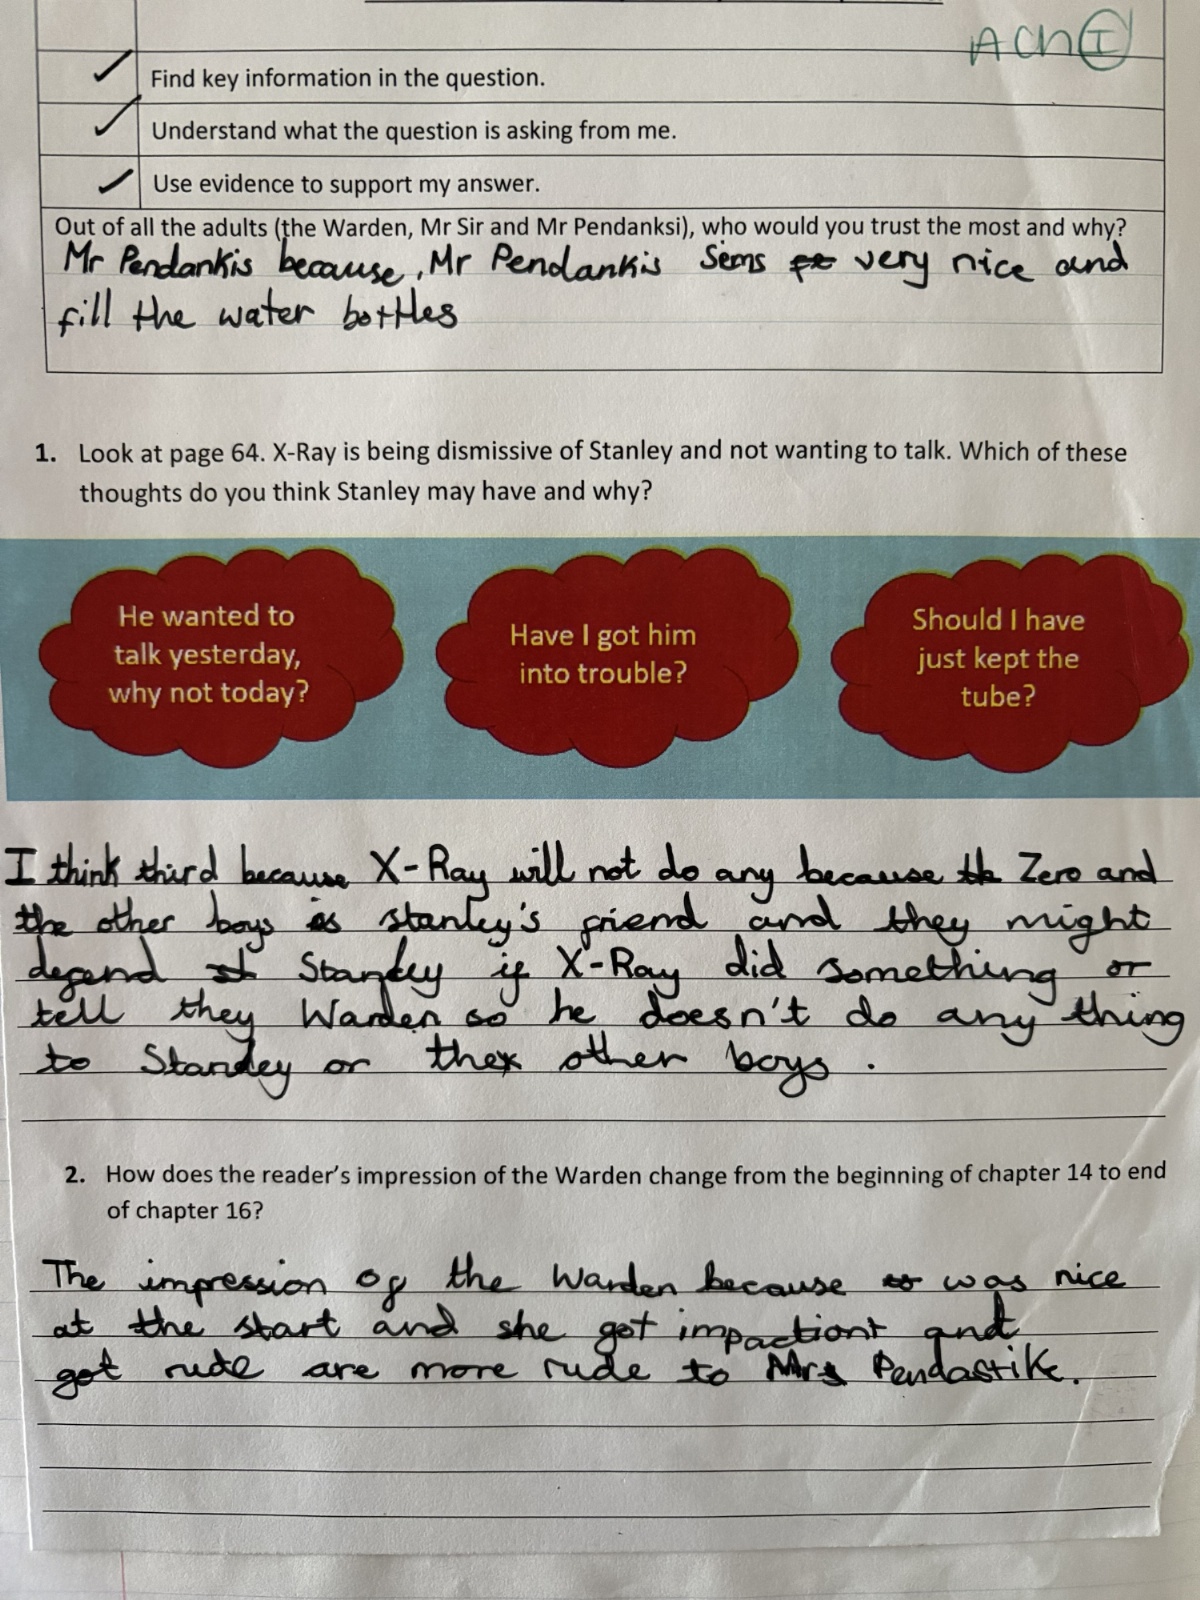 ACh I
Find key information in the question.
Understand what the question is asking from me.
Use evidence to support my answer.
Out of all the adults (the Warden, Mr Sir and Mr Pendanksi), who would you trust the most and why?
Mr Pendankis because, Mr Pendankis Sems very nice and
fill the water bottles
1. Look at page 64. X-Ray is being dismissive of Stanley and not wanting to talk. Which of these
thoughts do you think Stanley may have and why?
He wanted to
talk yesterday,
why not today?
Have I got him
into trouble?
Should I have
just kept the
tube?
I think third because X-Ray will not do any because Zero and
the other boys is stanley's friend and they might
defend Stanley if X-Ray did something or
tell they Warden so he doesn't do any thing
to Stanley or the other boys.
2. How does the reader's impression of the Warden change from the beginning of chapter 14 to end
of chapter 16?
The impression of the Warden because was nice
at the start and she got impactiont and
got rude are more rude to Mr Pendastik.